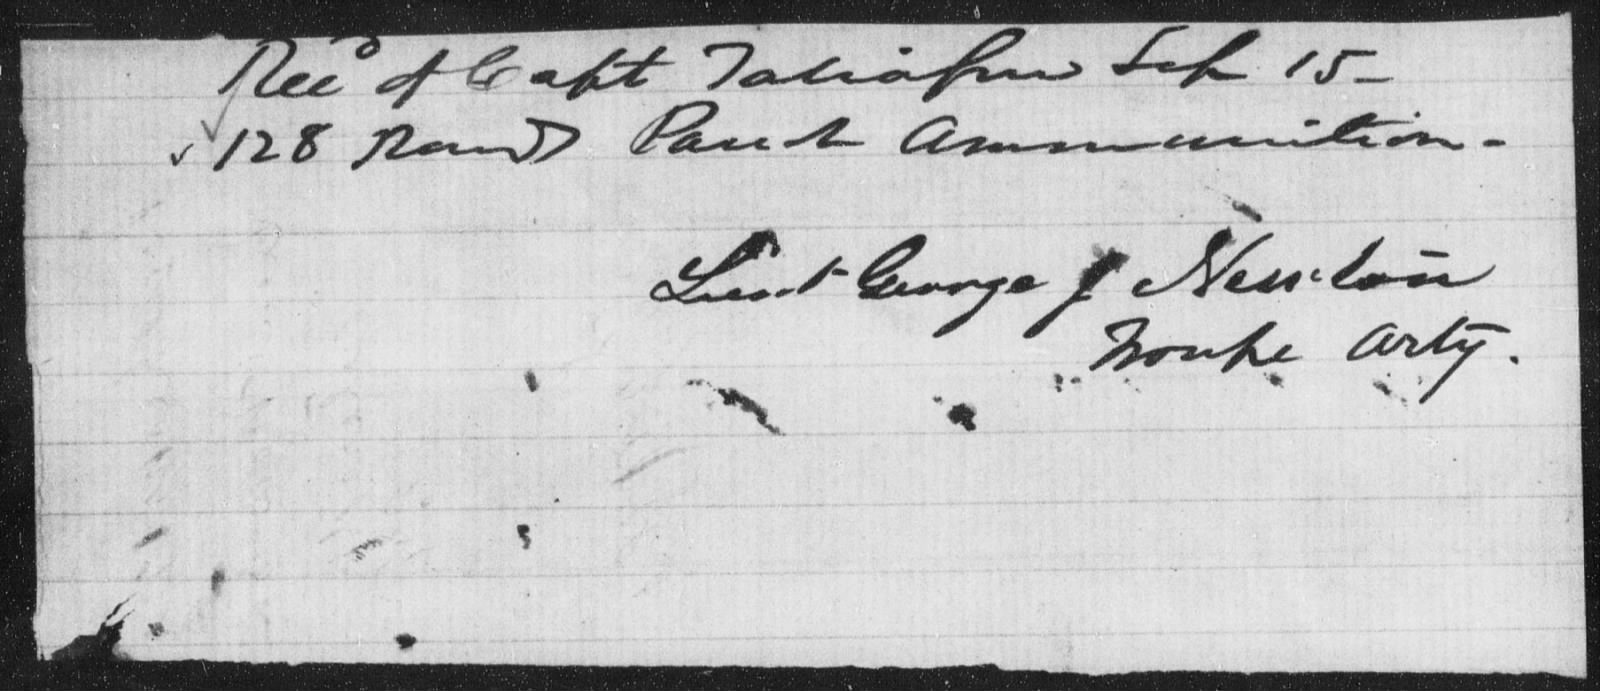 Recd of Capt Taliaferro Sep 15-
128 Rounds Parrott Ammunition-
Lieut George J Newton
Troupe Arty.